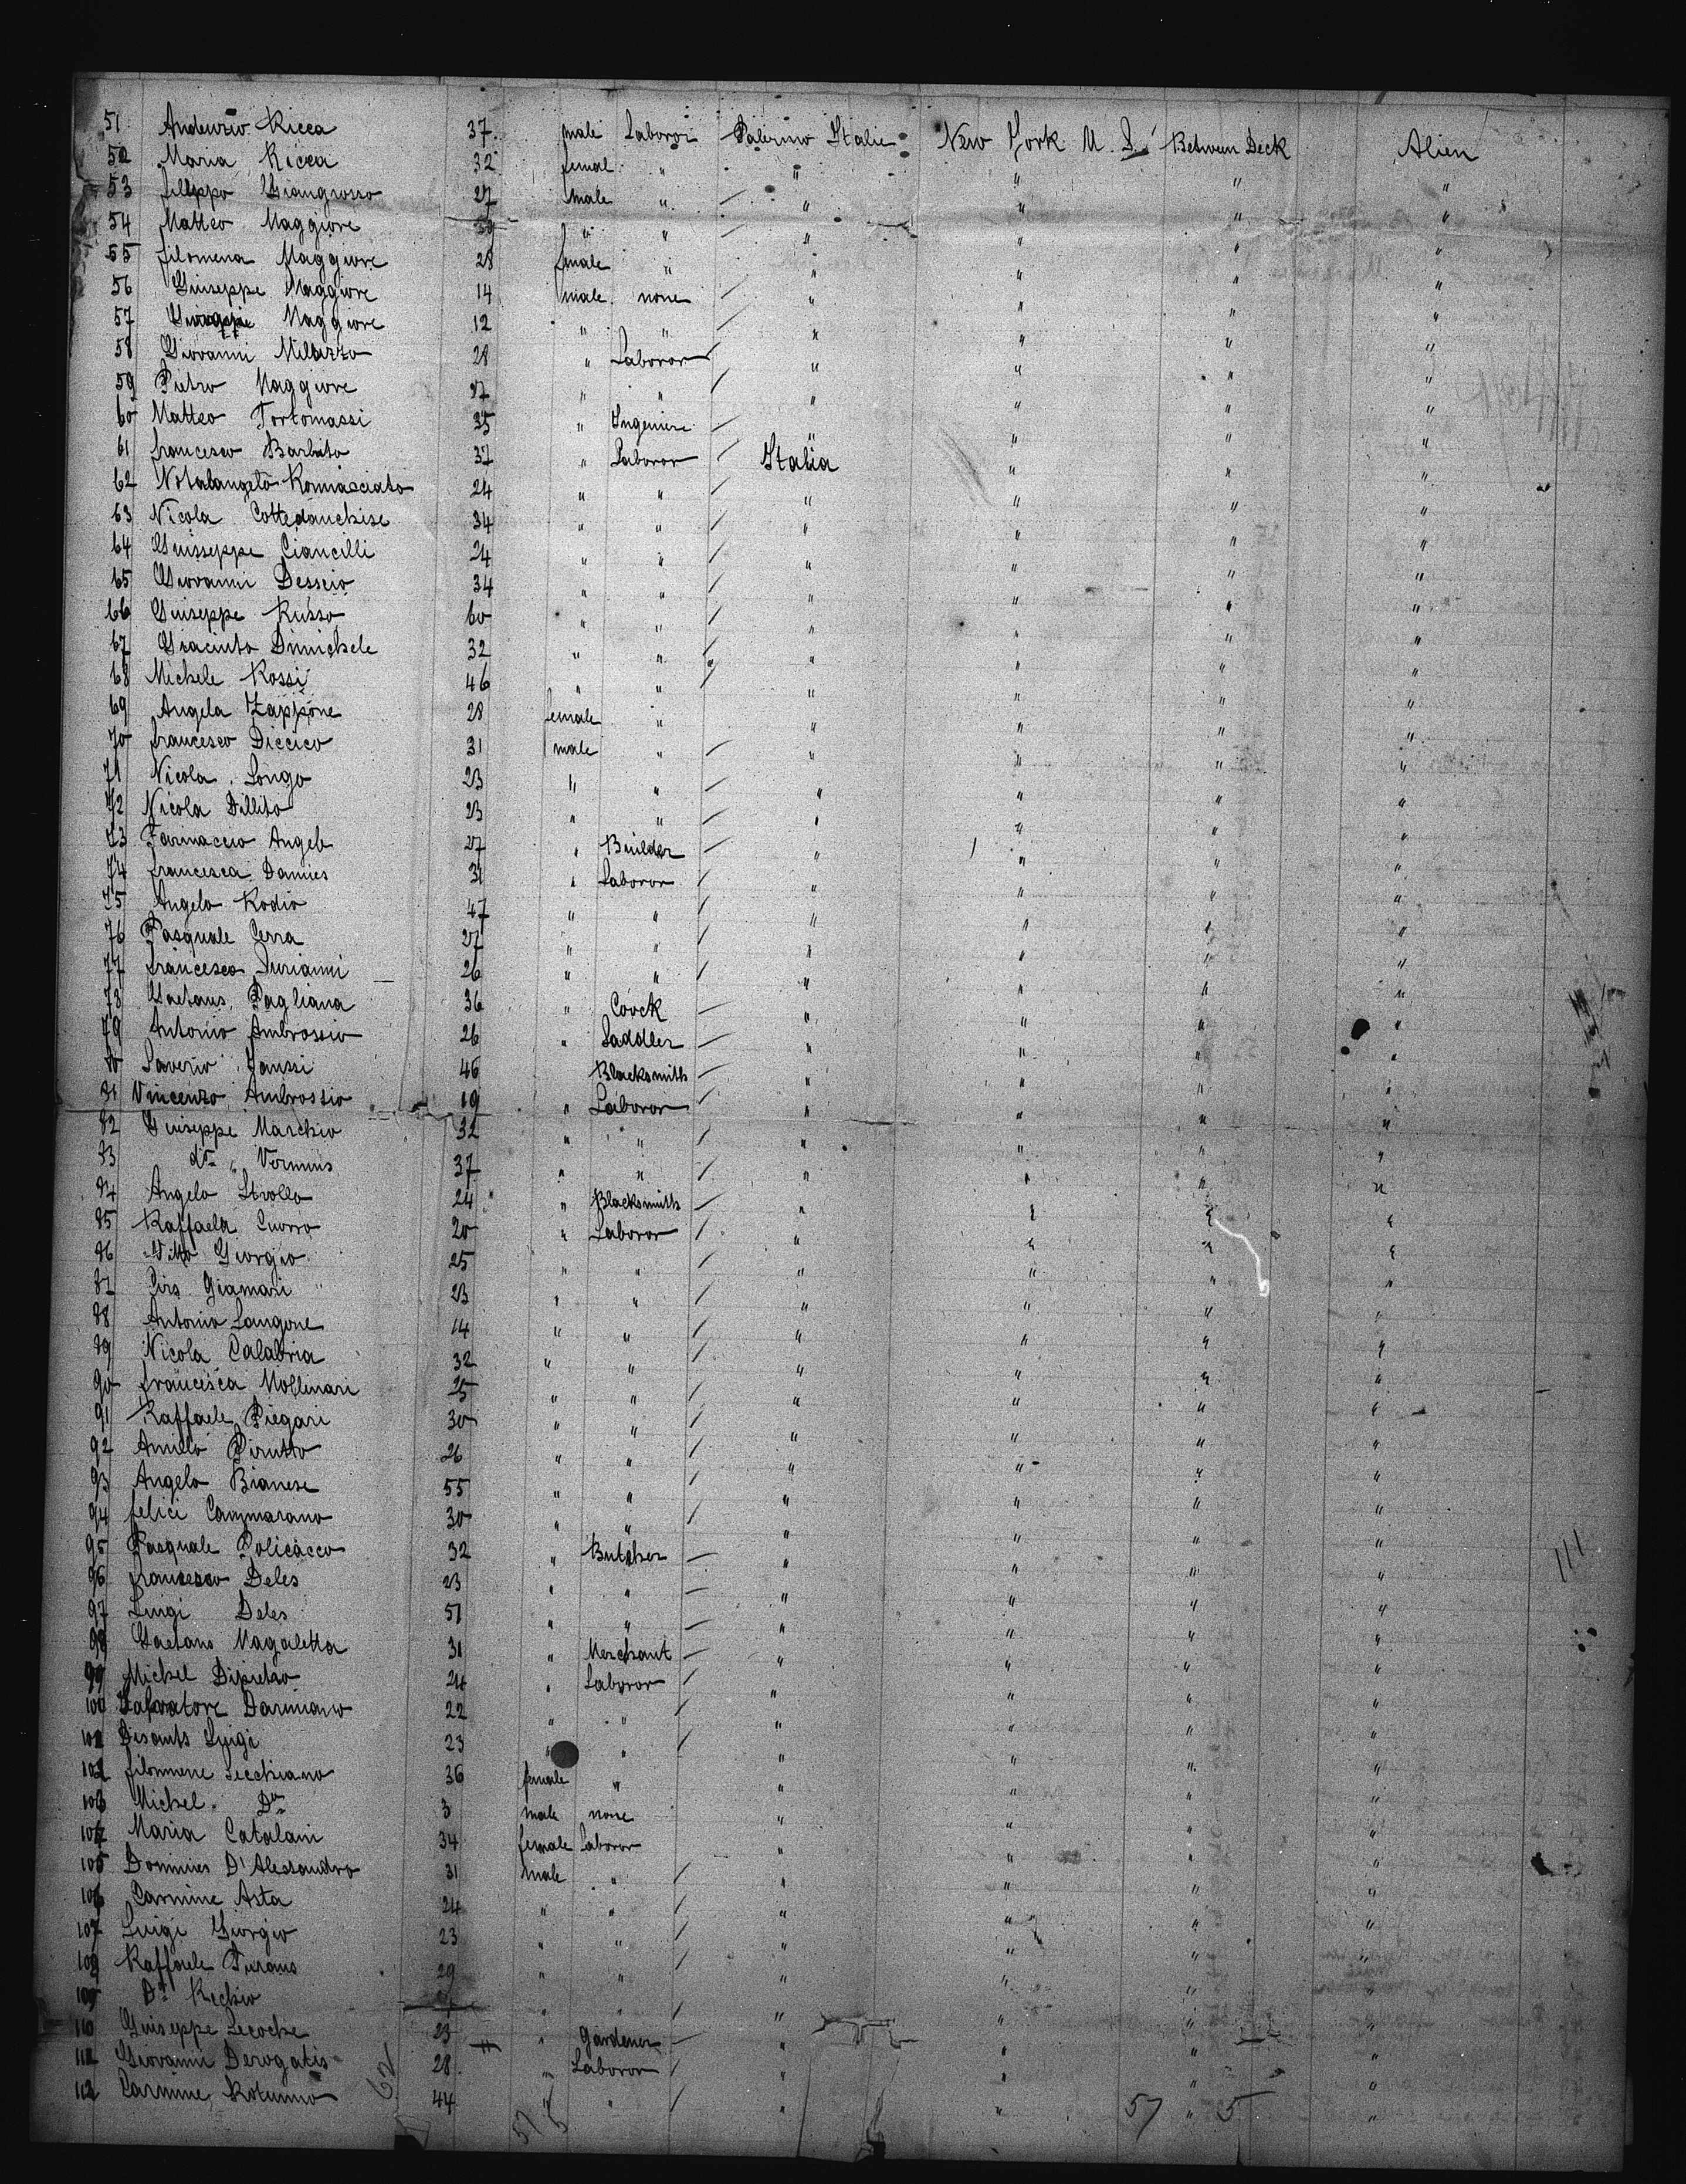 51 Andenzio Ricca 37 male Laboror Palermo Italie New York U. S. Between Deck Alien
52 Maria Ricca 32 femal " " " " "
53 filippo Giangrosso 27 male " " " " "
54 Matteo Maggiore " " " " " "
55 filomena Maggiore 28 female " " " " "
56 Giuseppe Maggiore 14 male none " " " "
57 Maggiore 12 " " " " " "
58 Giovanni Milazzo 28 " Laboror " " " "
59 Pietro Maggiore 27 " " " " " "
60 Matteo Tortomassi 35 " Ingeniere " " " "
61 francesco Barbato 37 " Laboror Italia " " "
62 Notalangelo Ronnacciato 24 " " " " " "
63 Nicola Cottedanchise 34 " " " " " "
64 Guisseppe Ciancilli 24 " " " " " "
65 Giovanni Desscio 34 " " " " " "
66 Guiseppe Russo 60 " " " " " "
67 Graciuto Dimichele 32 " " " " " "
68 Michele Rossi 46 " " " " " "
69 Angela Zappone 28 female " " " " "
70 francesco Diccico 31 male " " " " "
71 Nicola Longo 23 " " " " " "
72 Nicola Dillito 23 " " " " " "
73 Farinaccio Angelo 27 " Builder " " " "
74 francesca Damies 31 " Laboror " " " "
75 Angelo Rodio 47 " " " " " "
76 Pasquale Cerra 27 " " " " " "
77 francesco Turianni 26 " " " " " "
78 Gaetans Pagliana 36 " Coock " " " "
79 Antonio Ambrossio 26 " Saddler " " " "
80 Saverio Janssi 46 Blacksmith " " " "
81 Vincenzo Ambrossio 19 " Laboror " " " "
82 Guiseppe Marchio 32 " " " " " "
83 do " Vernnus 37 " " " " " "
84 Angelo Strollo 24 " Blacksmith " " " "
85 Raffaela Cuorro 20 " Laboror " " " "
86 Vito Giorgio 25 " " " " " "
87 Cirs Giamari 23 " " " " " "
88 Antonio Langone 14 " " " " " "
89 Nicola Calabria 32 " " " " " "
90 francisca Mollinari 25 " " " " " "
91 Raffaele Piegari 30 " " " " " "
92 Aniello Pirutto 26 " " " " " "
93 Angelo Bianese 55 " " " " " "
94 felici Cammarano 30 " " " " " "
95 Pasquale Policacco 32 " Butcher " " " "
96 francesco Deles 23 " " " " " "
97 Luigi Deles 51 " " " " " "
98 Gaetano Magaletta 31 " Merchant " " " "
99 Michel Dipietro 24 " Laboror " " " "
100 Salvatore Darmiano 22 " " " " " "
101 Disants Luigi 23 " " " " " "
102 filomene Secchiano 36 female " " " " "
103 Michel Do 3 male none " " " "
104 Maria Catalani 34 female Laboror " " " "
105 Dominies D'Alessandro 31 male " " " " "
106 Carmine Asta 24 " " " " " "
107 Luigi Giorgio 23 " " " " " "
108 Raffaele Turano 29 " " " " " "
109 Do Rechio " " " " " "
110 Guiseppe Lecoche 23 " Gardener " " " "
111 Giovanni Derogatis 28 " Laboror " " " "
112 Carmine Rotunno 44 " " " " " "
62 57 5 57 5